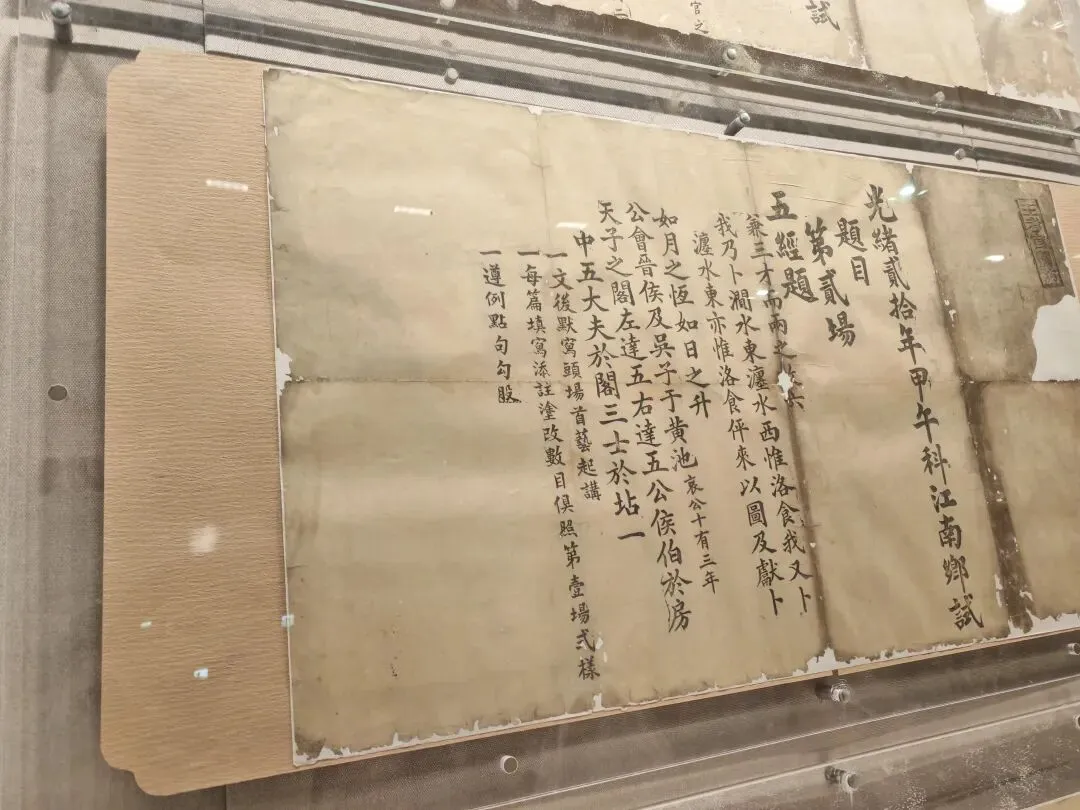 試
官之
二
光緒貳拾年甲午科江南鄉試
題目
第貳場
五經題
兼三才而兩之六
我乃卜澗水東瀍水西惟洛食我又卜
瀍水東亦惟洛食伻來以圖及獻卜
如月之恆如日之升
公會晉侯及吳子于黃池 哀公十有三年
天子之閣左達五右達五公侯伯於房
中五大夫於閣三士於坫一
一文後默寫頭場首藝起講
一每篇填寫添註塗改數目俱照第壹場式樣
一遵例點句勾股